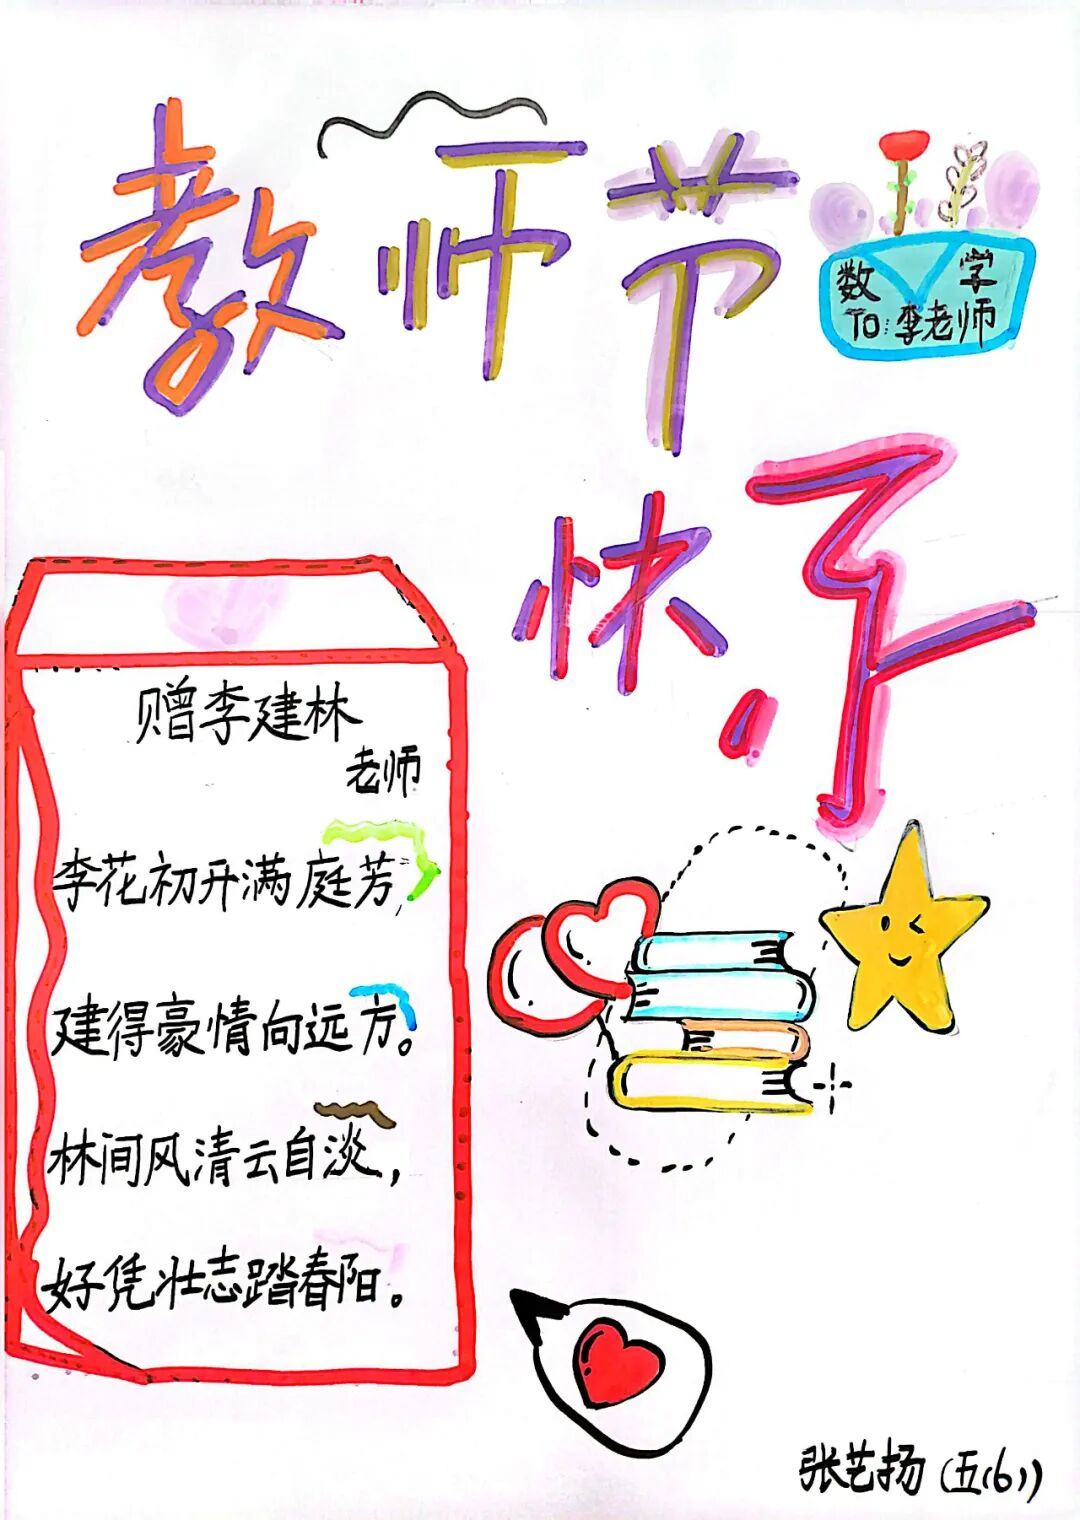 教师节
数学
TO:李老师
快乐
赠李建林
老师
李花初开满庭芳,
建得豪情向远方。
林间风清云自淡,
好凭壮志踏春阳。
张艺扬(五(6))